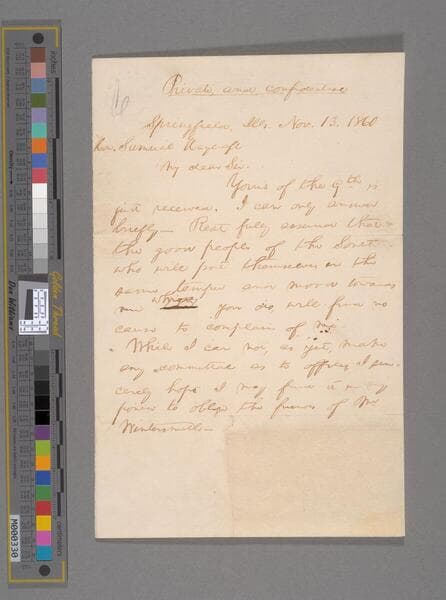 Private and confidential
Springfield, Ills. Nov. 13. 1860
Hon. Samuel Haycraft
My dear Sir.
Yours of the 9th is
just received. I can only answer
briefly— Rest fully assured that
the good people of the South
who will put themselves in the
same temper and mood towards
me you do, will find no
cause to complain of me.
While I can not, as yet, make
any committal as to offices, I sin-
cerely hope I may find it in my
power to oblige the friends of Mr
Wintersmith—
inches
centimeters
Golden Thread
M000330